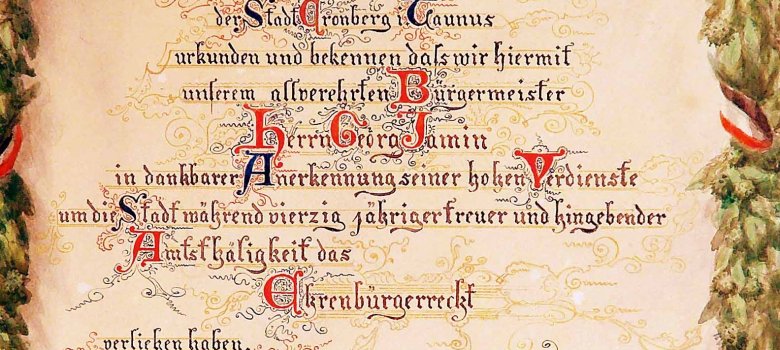 der Stadt Cronberg i. Taunus
urkunden und bekennen daſs wir hiermit
unserem allverehrten Bürgermeister
Herrn Georg Jamin
in dankbarer Anerkennung seiner hohen Verdienste
um die Stadt während vierzig jähriger treuer und hingebender
Amtsthätigkeit das
Ehrenbürgerrecht
verliehen haben.